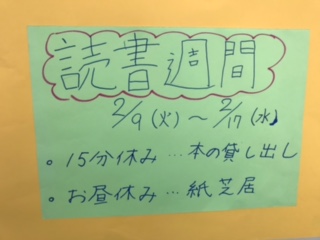 読書週間
2/9(火)~2/17(水)
。15分休み…本の貸し出し
。お昼休み…紙芝居